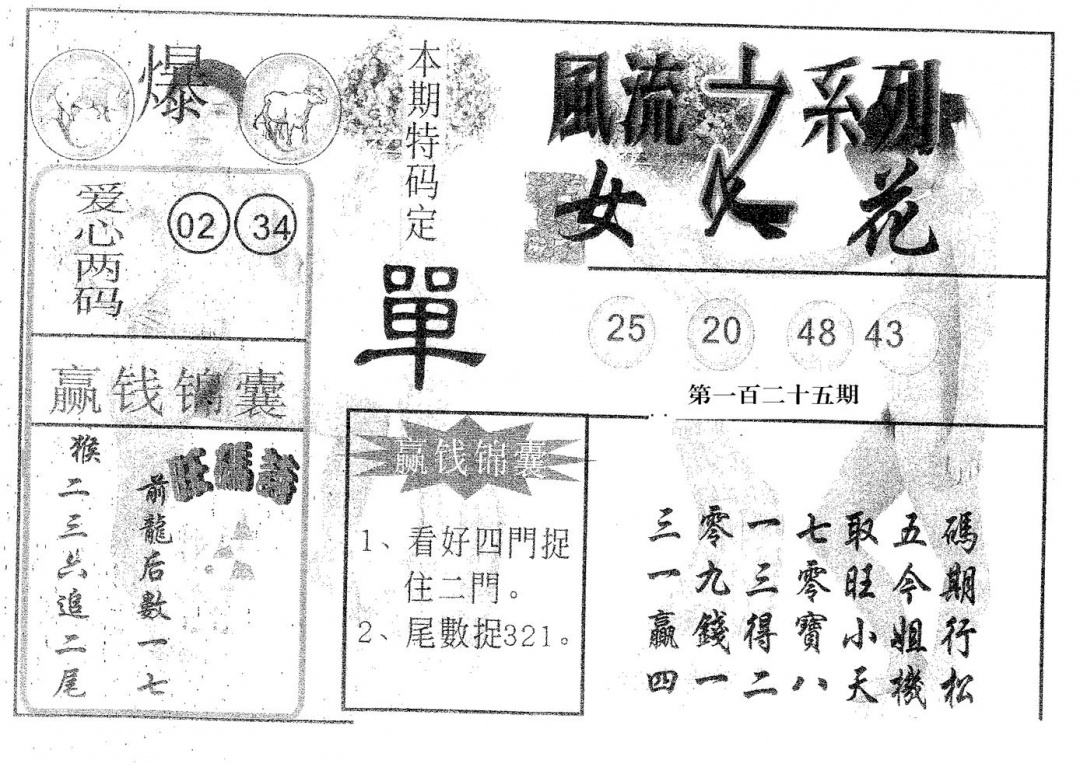 爆
本期特码定
單
風流之系列
女人花
爱心两码
02 34
25 20 48 43
第一百二十五期
赢钱锦囊
旺碼
前龍后數一七
猴二三六追二尾
赢钱锦囊
1、看好四門捉
住二門。
2、尾數捉321。
三零一七取五碼
一九三零旺今期
贏錢得寶小姐行
四一二八天機松